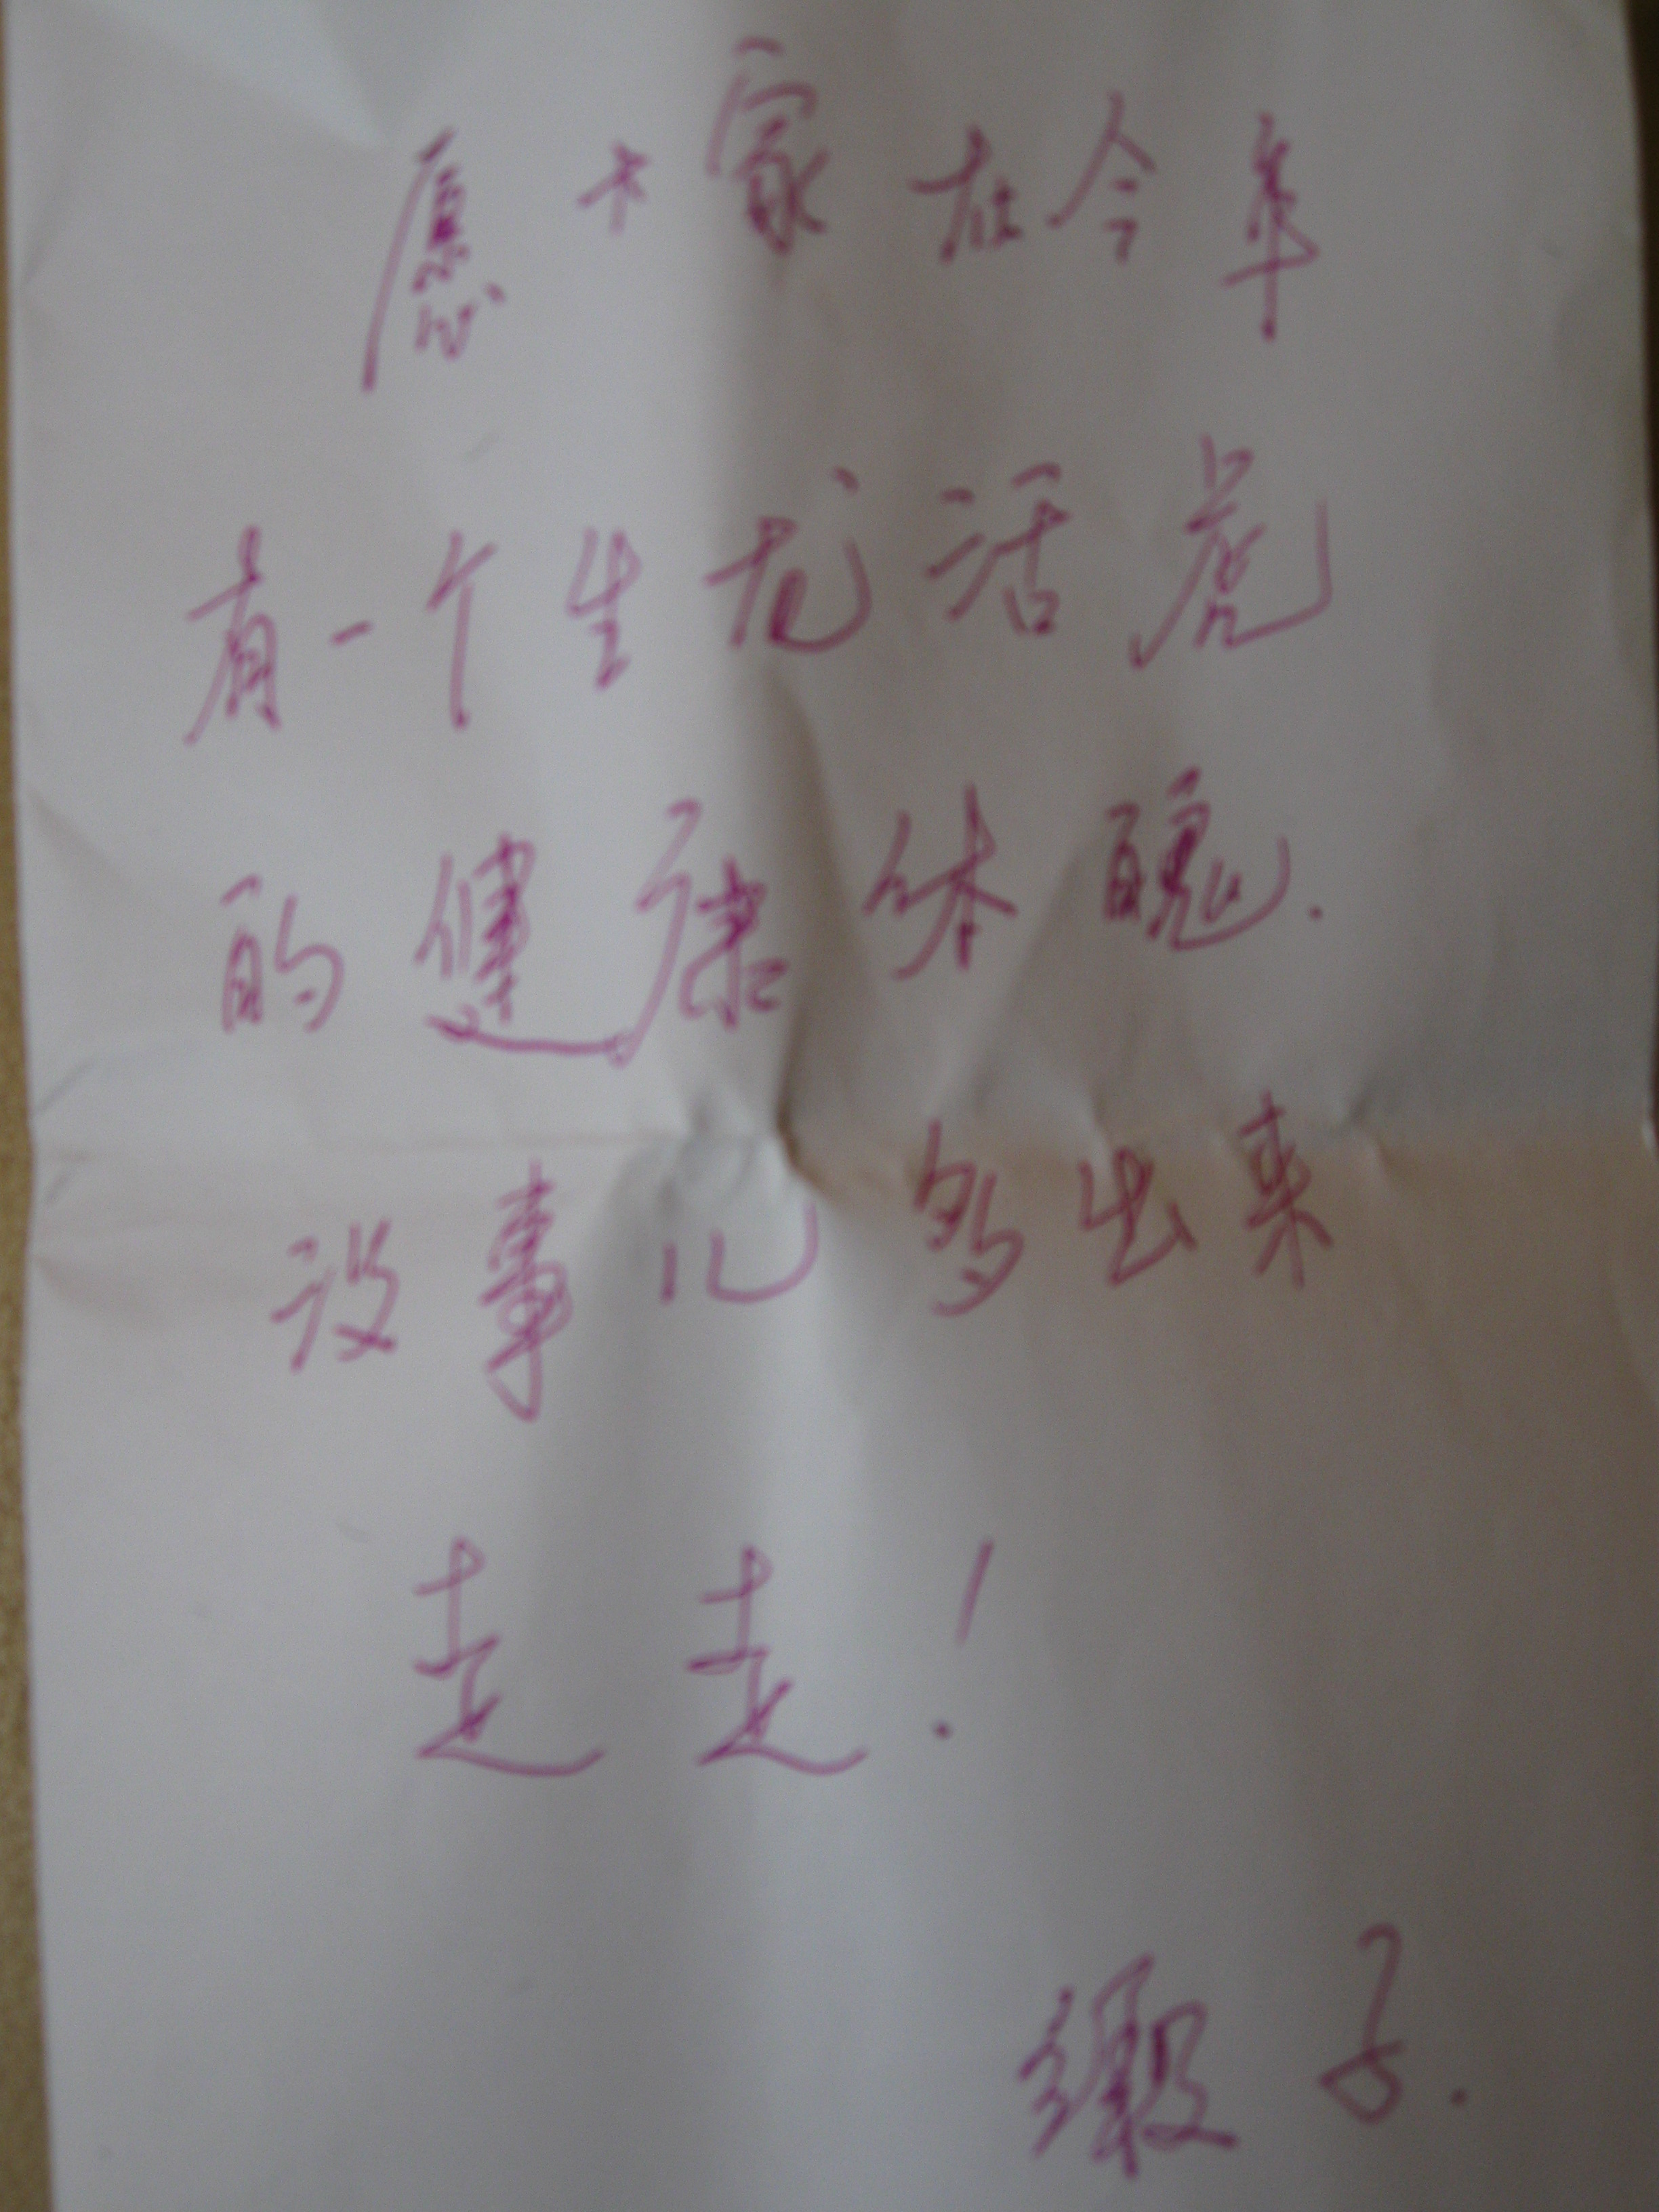 愿大家在今年
有一个生龙活虎
的健康体魄.
没事儿多出来
走走!
缎子.